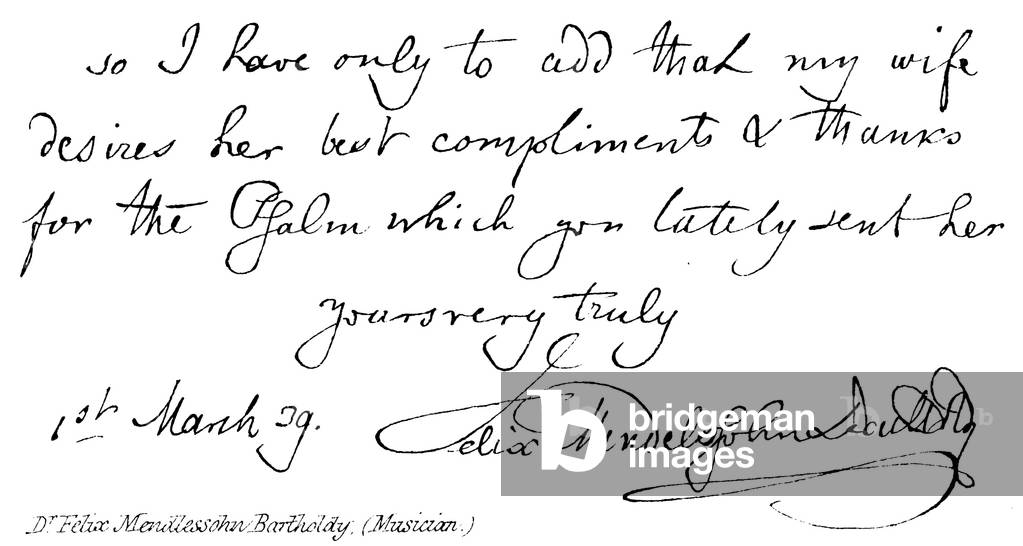 so I have only to add that my wife
desires her best compliments & thanks
for the Psalm which you lately sent her
yours very truly
1st March 39.
Felix Mendelssohn Bartholdy
bridgeman
images
Dr. Felix Mendlessohn Bartholdy, (Musician.)